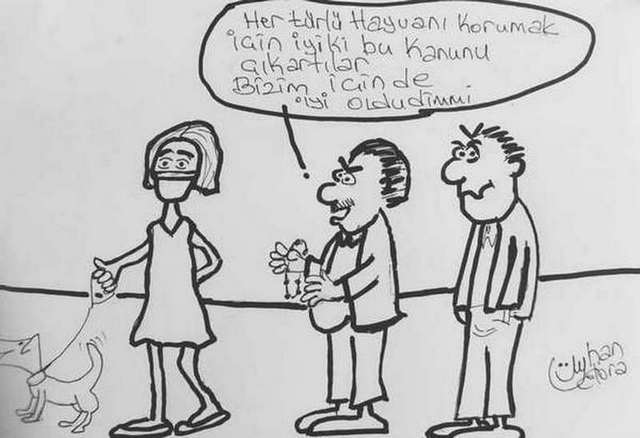 Her türlü Hayvanı korumak
için iyiki bu kanunu
çıkartılar
Bizim için de
iyi oldudimmi